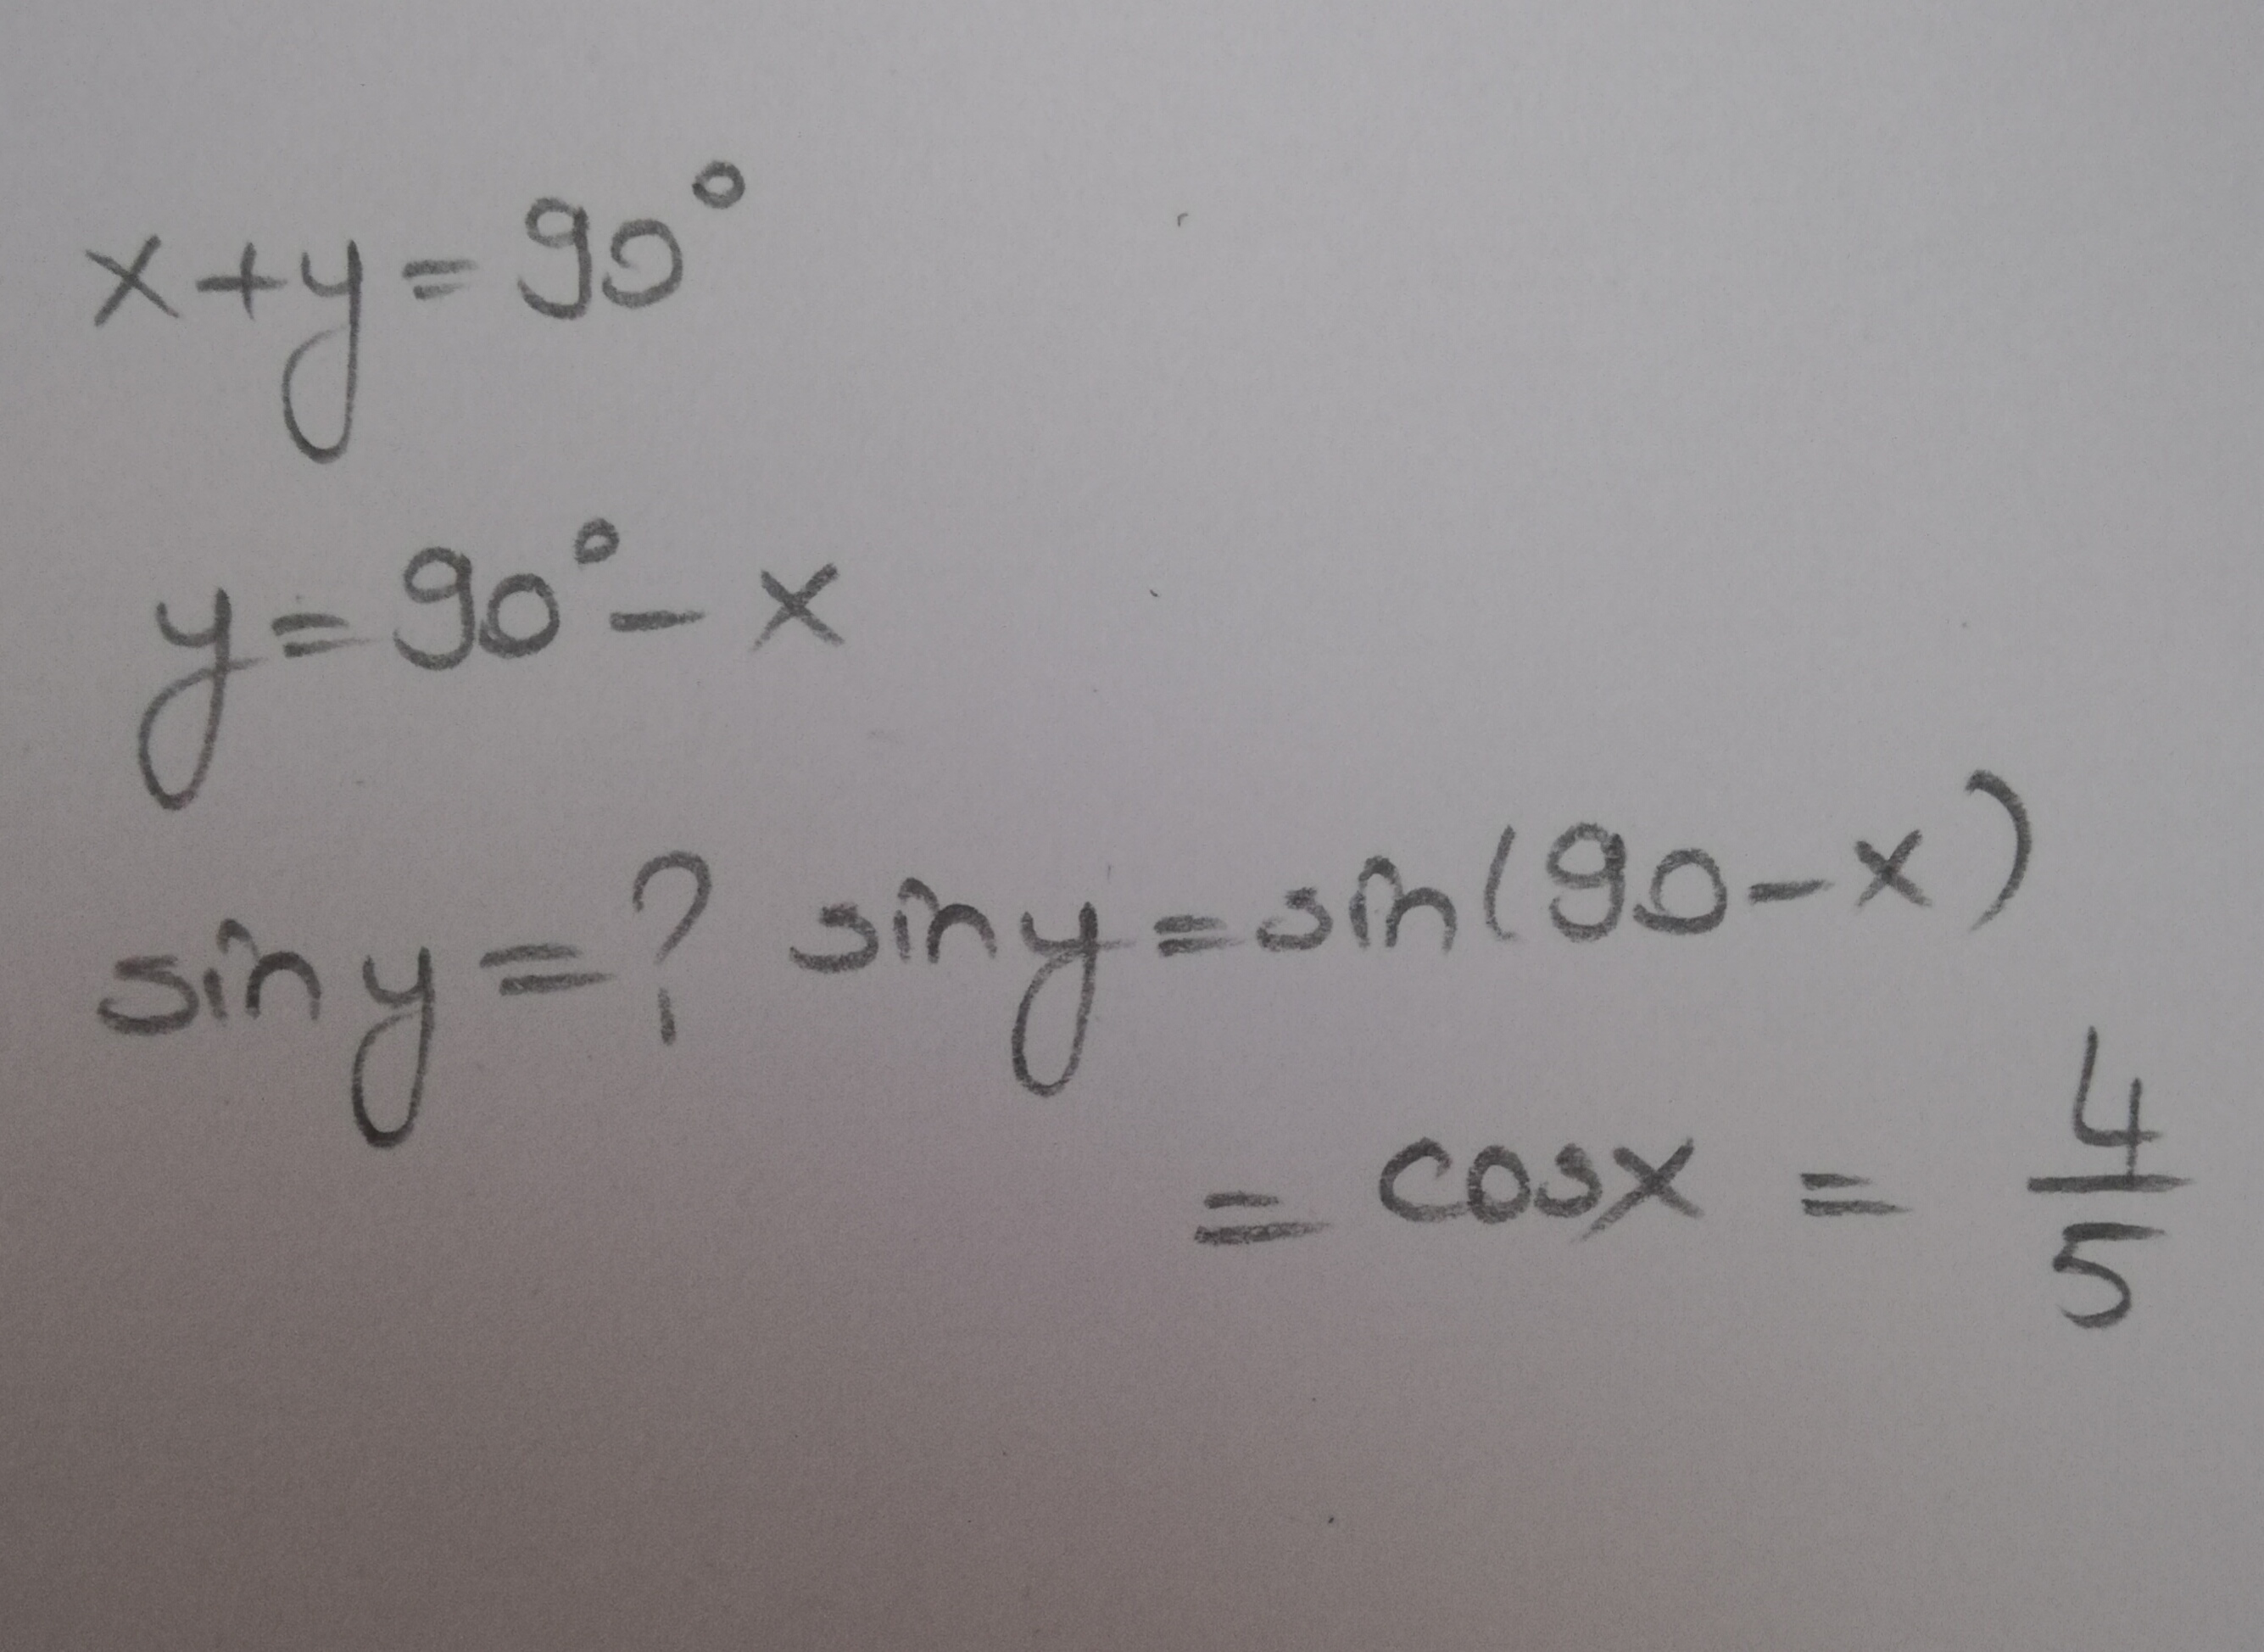 x+y=90°
y=90°-x
sin y=? sin y=sin(90-x)
=cosx=4/5